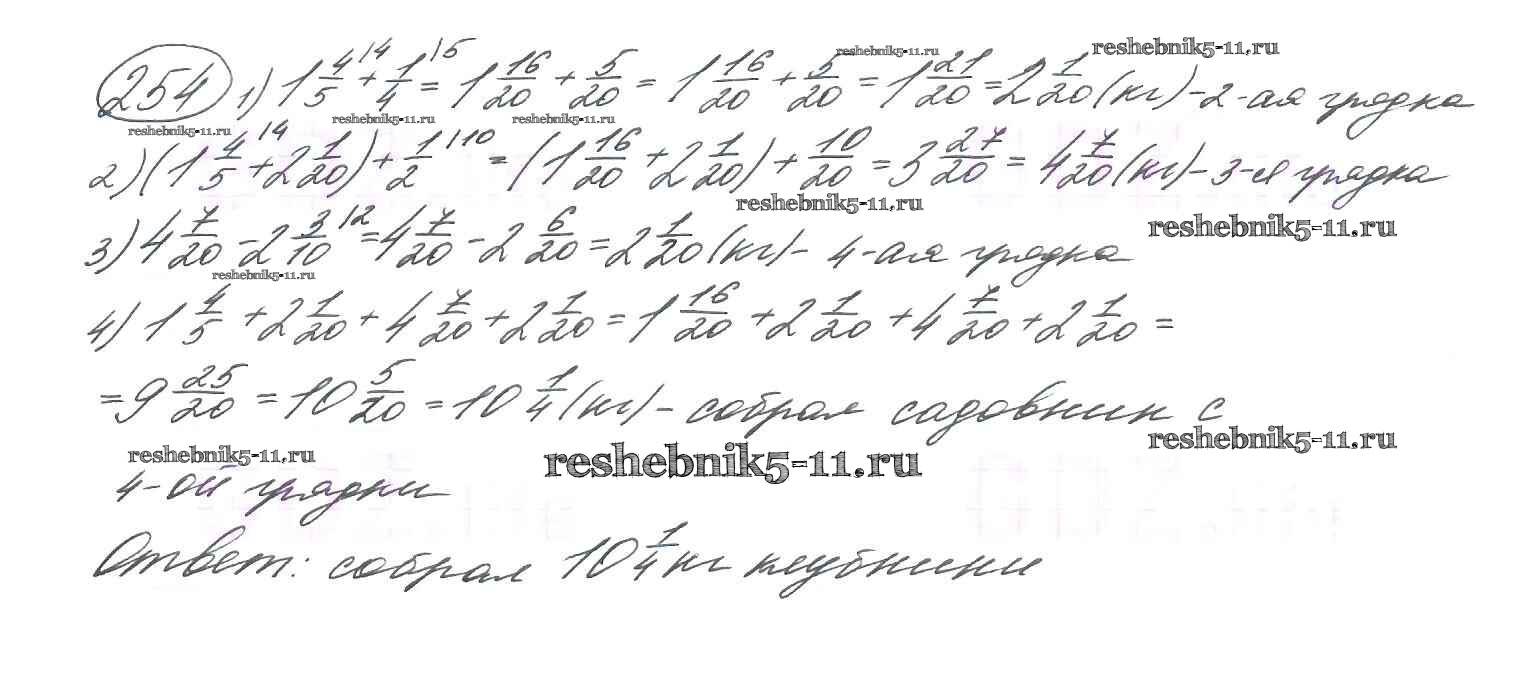 254 1) 1 4/5 |4 + 1/4 |5 = 1 16/20 + 5/20 = 1 16/20 + 5/20 = 1 21/20 = 2 1/20 (кг) - 2-ая грядка
reshebnik5-11.ru reshebnik5-11.ru reshebnik5-11.ru reshebnik5-11.ru reshebnik5-11.ru
2) (1 4/5 |4 + 2 1/20) + 1/2 |10 = (1 16/20 + 2 1/20) + 10/20 = 3 27/20 = 4 7/20 (кг) - 3-я грядка
reshebnik5-11.ru reshebnik5-11.ru
3) 4 7/20 - 2 3/10 |2 = 4 7/20 - 2 6/20 = 2 1/20 (кг) - 4-ая грядка
reshebnik5-11.ru
4) 1 4/5 + 2 1/20 + 4 7/20 + 2 1/20 = 1 16/20 + 2 1/20 + 4 7/20 + 2 1/20 =
= 9 25/20 = 10 5/20 = 10 1/4 (кг) - собрал садовник с
reshebnik5-11.ru reshebnik5-11.ru reshebnik5-11.ru
4-ой грядки
Ответ: собрал 10 1/4 кг клубники